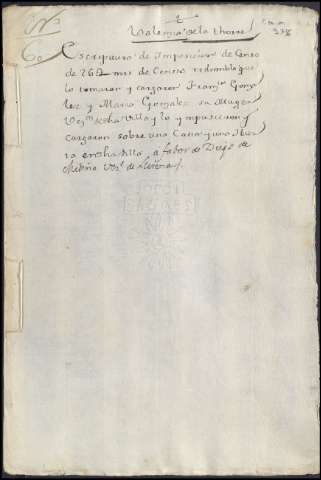 Valencia de la thorre
Escriptura de Imposicion de Censo
de 262 mrs de Censo redimible que
lo tomaron y cargaron Franco Gonza
lez y Maria Gonzalez su Muger
Vezos de dha Villa y lo ympusieron y
cargaron sobre una Casa y una Huer
ta en dha Villa, a fabor de Diego de
Vezo de Llerena